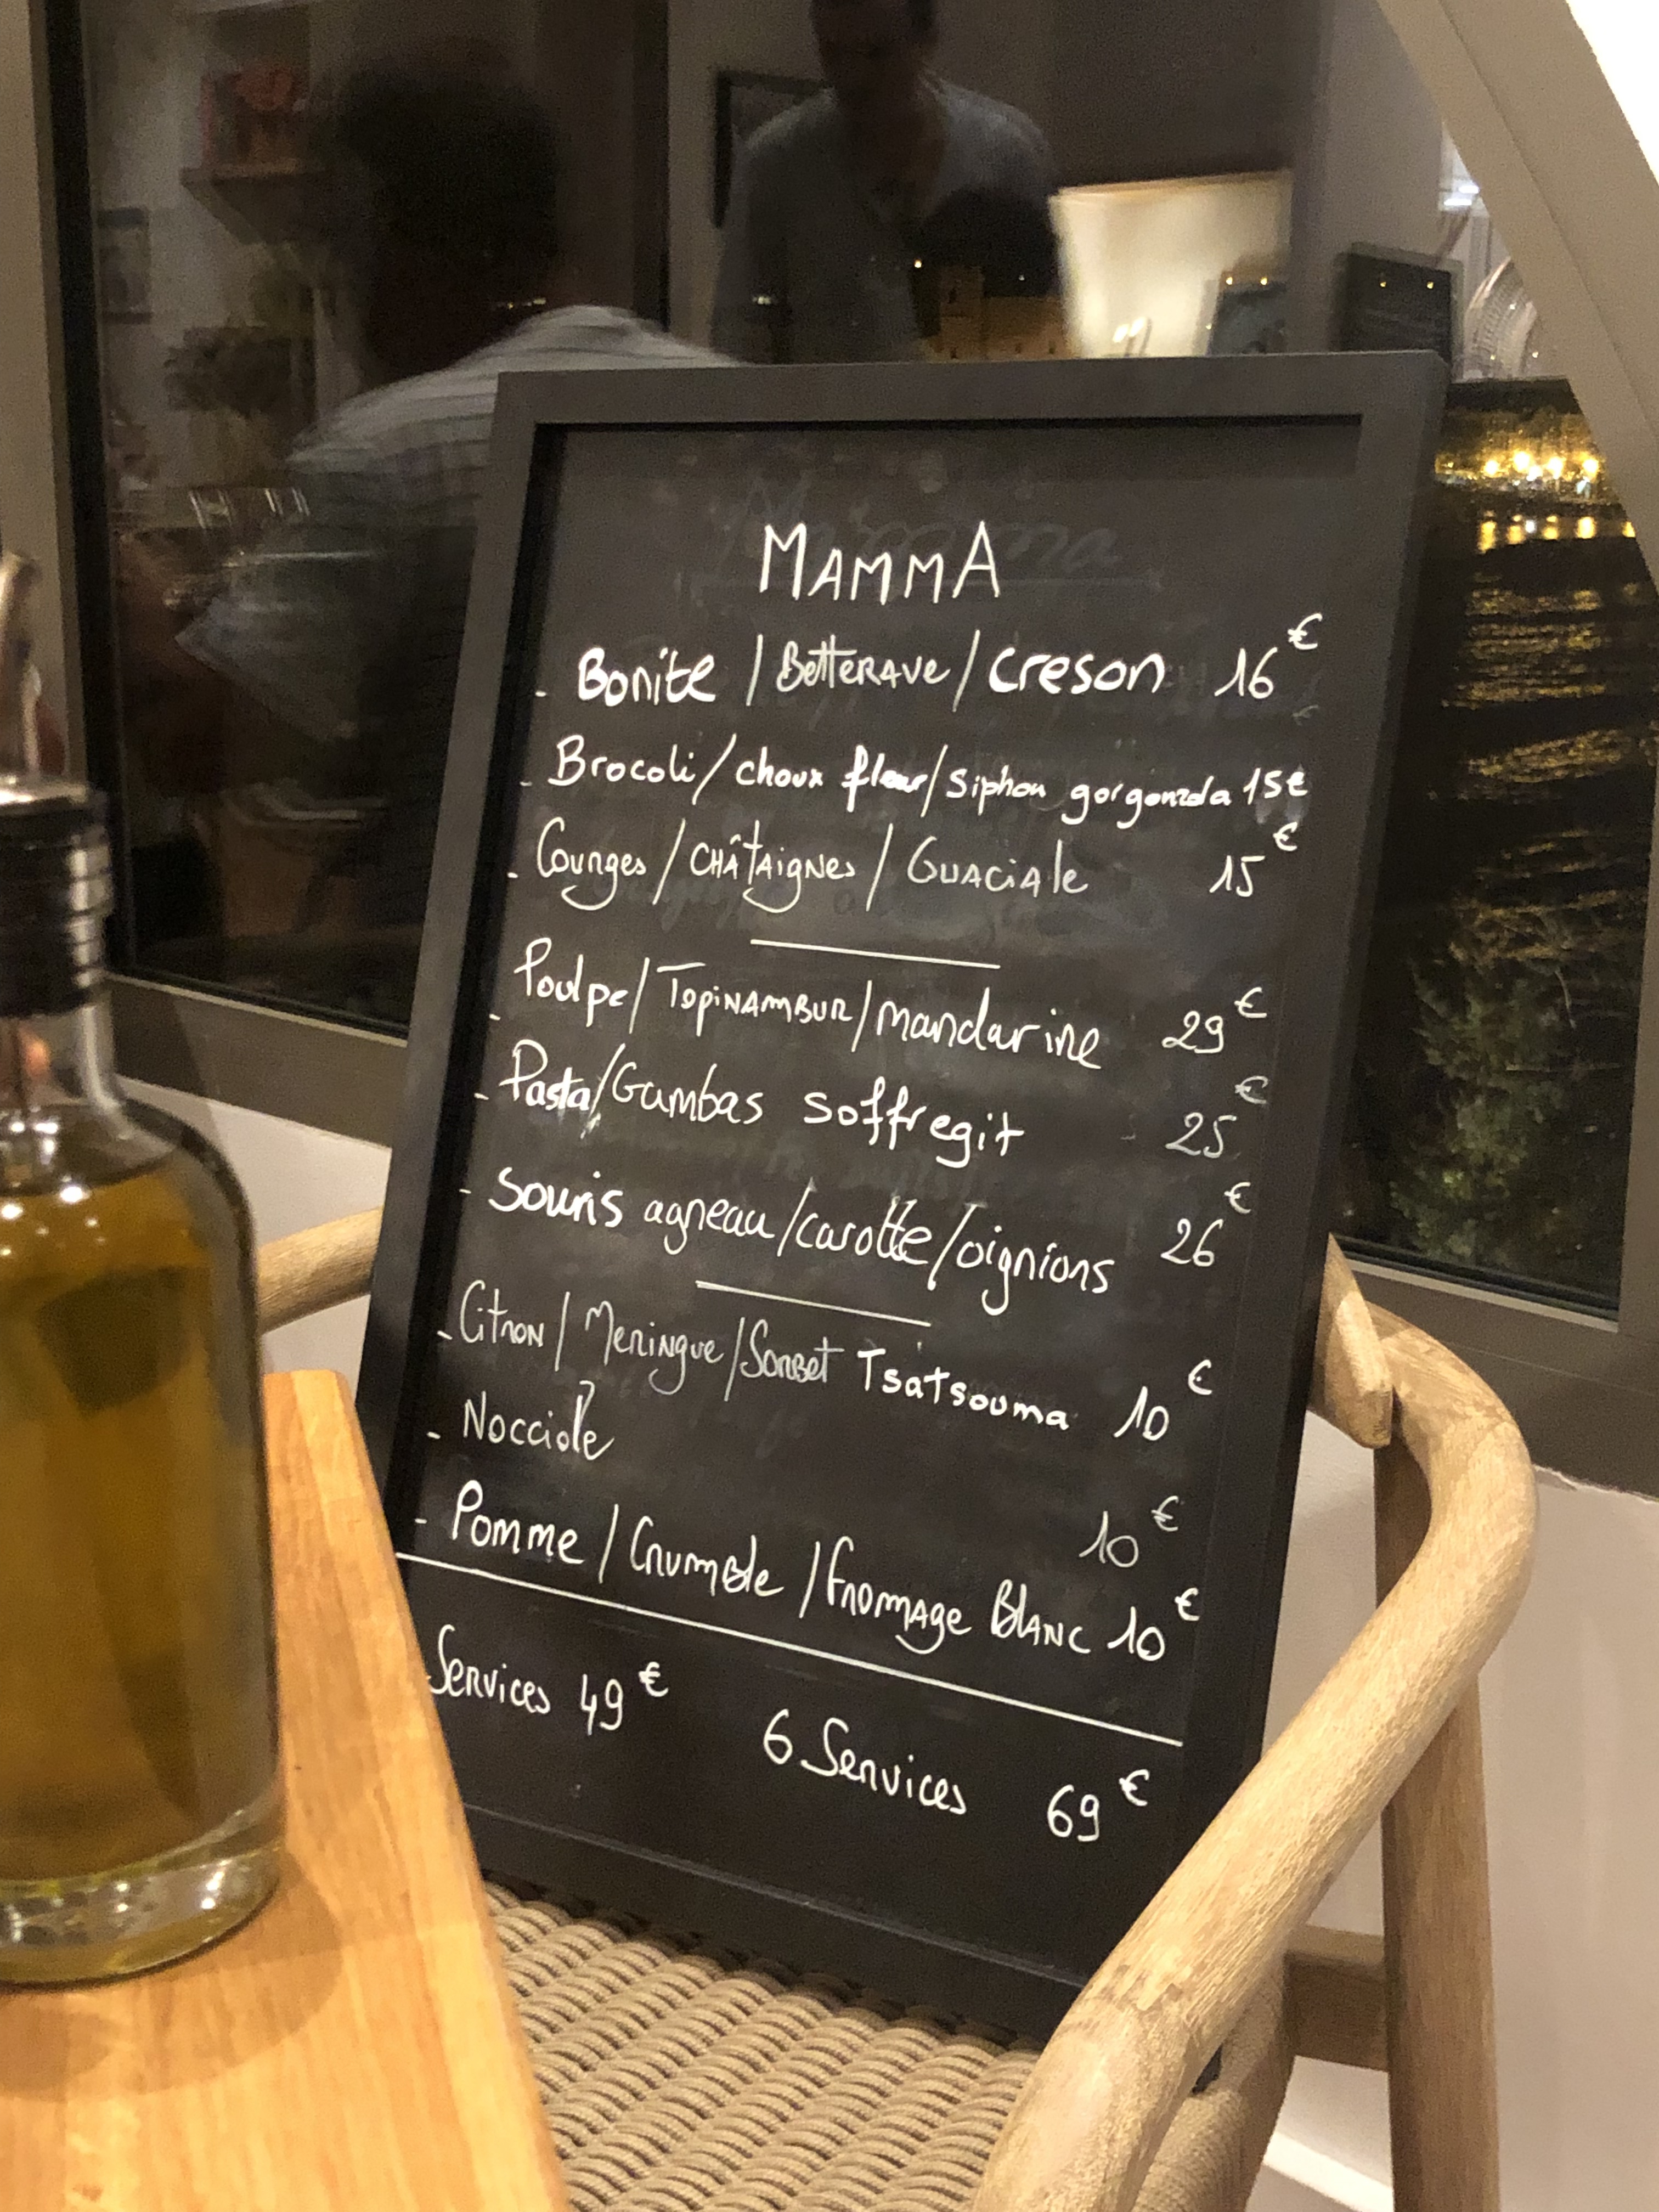 MAMMA
- Bonite / BetteRAve / creson 16€
- Brocoli / choux fleur / siphon gorgonzola 15€
- Courges / CHÂTAIGNes / GUACIAle 15€
- Poulpe / TopiNAMBUR / mandarine 29€
- Pasta / Gambas soffregit 25€
- Souris agneau / carotte / oignions 26€
- Citron / Meringue / Sorbet Tsatsouma 10€
- Nocciole 10€
- Pomme / Crumble / Fromage Blanc 10€
Services 49€ 6 Services 69€